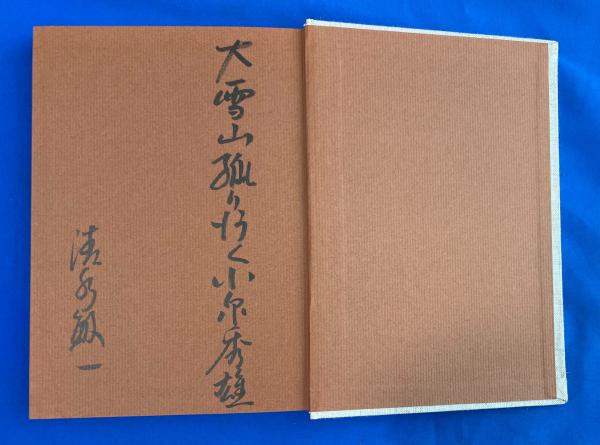 大雪山孤り行く小泉秀雄
清水敏一